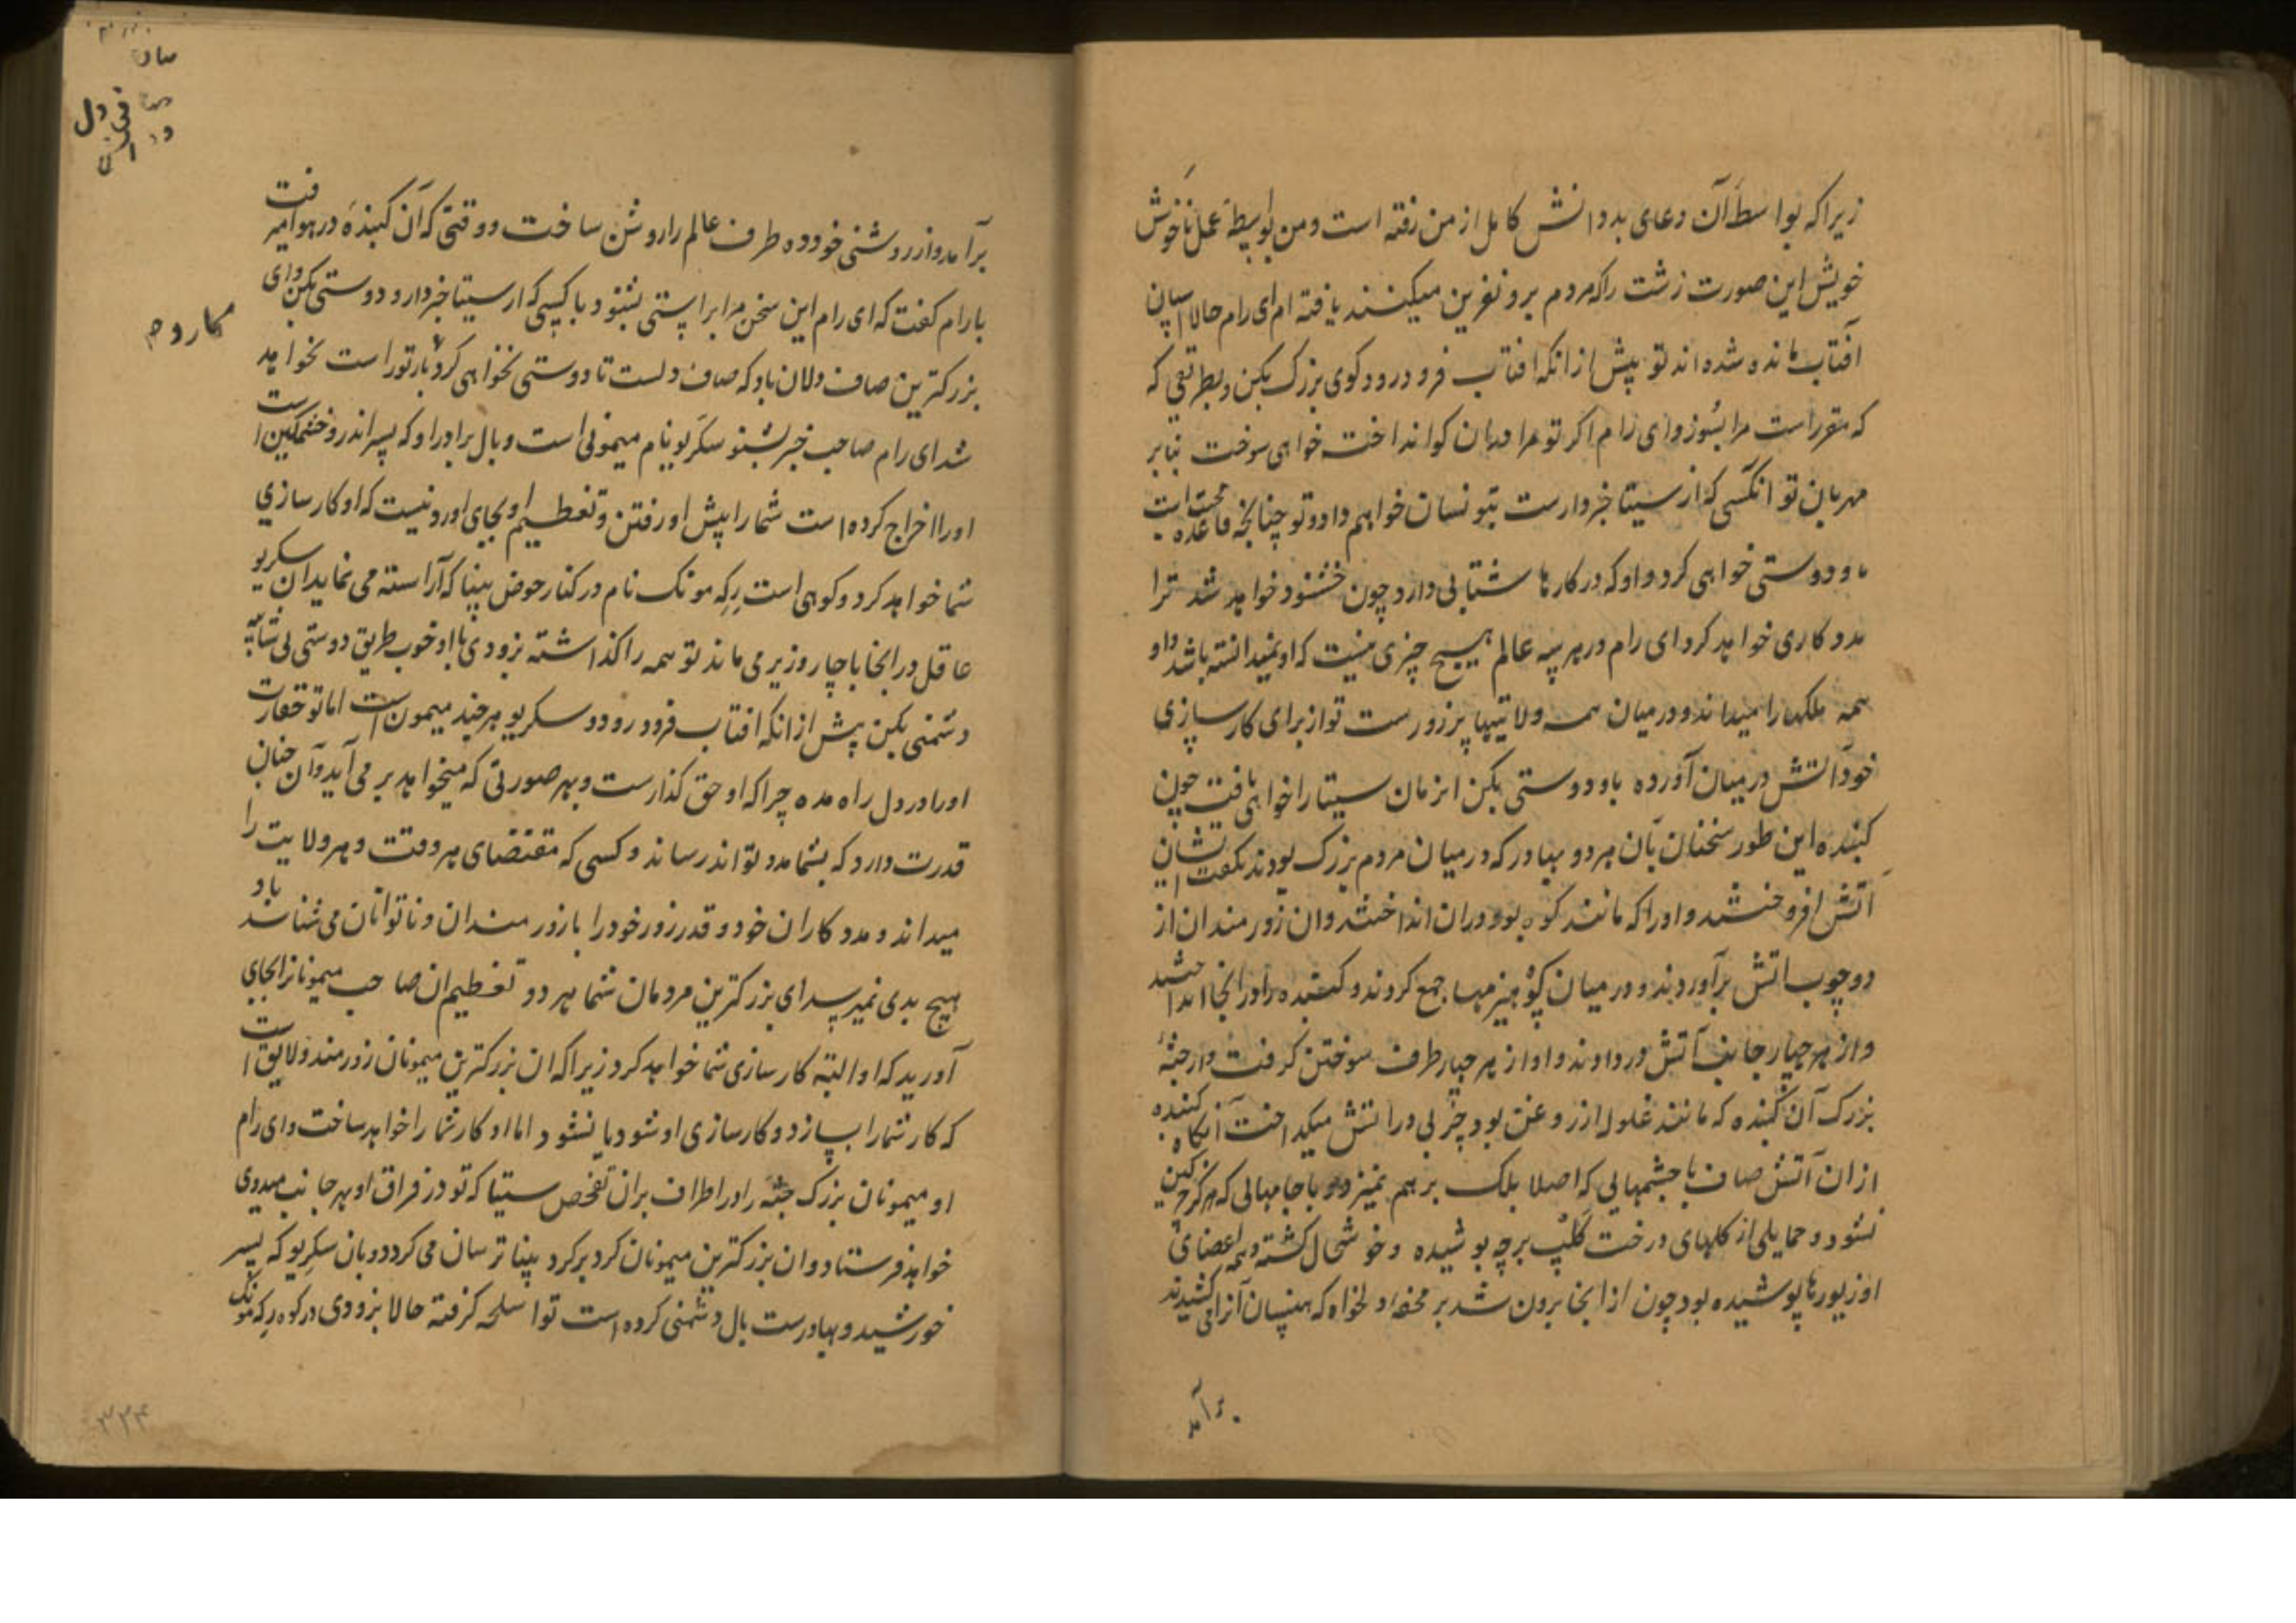 زیرا که بواسطهٔ آن دعای بد دانش کامل از من رفته است و من بواسطهٔ عمل ناخوش
خویش این صورت زشت را که مردم برو نفرین میکنند یافته ام ای رام حالا اسپان
آفتاب مانده شده اند تو پیش از انکه افتاب فرو درود کوی بزرگ بکن و بطریقی که
که مقررست مرا بسوز و ای رام اکر تو مرا دران کو انداخته خواهی سوخت بنابر
مهربانی تو انکسی که از سیتا خبردارست بتو نشان خواهم داد و تو چنانچه قاعده محبت است
باو دوستی خواهی کرد و او که در کارها شتابی دارد چون خشنود خواهد شد ترا
مددکاری خواهد کرد ای رام در هر سه عالم هیچ چیزی نیست که او نمیدانسته باشد و او
همه ملکها را میداند و در میان همه ولایتیها پرزورست تو از برای کارسازی
خود آتش در میان آورده باو دوستی بکن انزمان سیتا را خواهی یافت چون
کبنده این طور سخنان بآن هر دو بهادر که در میان مردم بزرک بودند بکفت ایشان
آتش افروختند و او را که مانند کوه بود دران انداختند و ان زورمندان از
دو چوب اتش برآوردند و در میان کو هیزمها جمع کردند و کبنده را در انجا انداختند
و از هر چهار جانب آتش در دادند و او از هر چهار طرف سوختن کرفت و از جثهٔ
بزرک آن کبنده که مانند غلوله از روغن بود چربی در اتش میکداخت آنکاه کبنده
ازان آتش صاف با چشمهایی که اصلا پلک بر هم نمیزد و با جامهایی که هرکز چرکین
نشود و حمایلی از کلهای درخت کلپ برچه پوشیده و خوشحال کشته و همه اعضای
او زیورها پوشیده بود چون از انجا برون شد بر محفهٔ دلخواه که هنسان آنرا می کشیدند
برآمد
برآمد و از روشنی خود ده طرف عالم را روشن ساخت و وقتی که آن کبنده در هوا میرفت
با رام کفت که ای رام این سخن مرا براستی بشنو و با کسی که از سیتا خبر دارد دوستی بکن و ای
بزرکترین صاف دلان باو که صاف دلست تا دوستی نخواهی کرد کار تو راست نخواهد
شد ای رام صاحب خبر بشنو سکریو نام میمونی است و بال برادر او که پسر اندر و خشمکین است
او را اخراج کرده است شما را پیش او رفتن و تعظیم او بجای اورونیست که او کارسازی
شما خواهد کرد و کوهی است رکه مونک نام در کنار حوض پنپا که آراسته می نماید ان سکریو
عاقل در انجا با چار وزیر می ماند تو همه را کذاشته بزودی با او خوب طریق دوستی بی شایبه
دشمنی بکن پیش از انکه افتاب فرود رود و سکریو هر چند میمون است اما تو حقارت
او را در دل راه مده چرا که او حق کذارست و بهر صورتی که میخواهد بر می آید و آن چنان
قدرت دارد که بشما مدد تواند رساند و کسی که مقتضای هر وقت و هر ولایت را
میداند و مددکاران خود و قدر زور خود را با زورمندان و ناتوانان می شناسد باو
هیچ بدی نمیرسد ای بزرکترین مردمان شما هر دو تعظیم ان صاحب میمونانرا بجای
آورید که او البته کارسازی شما خواهد کرد زیرا که ان بزرکترین میمونان زورمند و لایق است
که کار شما را بسازد و کارسازی او شود یا نشود اما او کار شما را خواهد ساخت و ای رام
او میمونان بزرک جثه را در اطراف برای تفحص سیتا که تو در فراق او بهر جانب میدوی
خواهد فرستاد و ان بزرکترین میمونان کرد برکرد پنپا ترسان می کردد و بان سکریو که پسر
خورشید و بهادرست بال دشمنی کرده است تو اسلحه کرفته حالا بزودی در کوه رکه مونک
۳۲۴